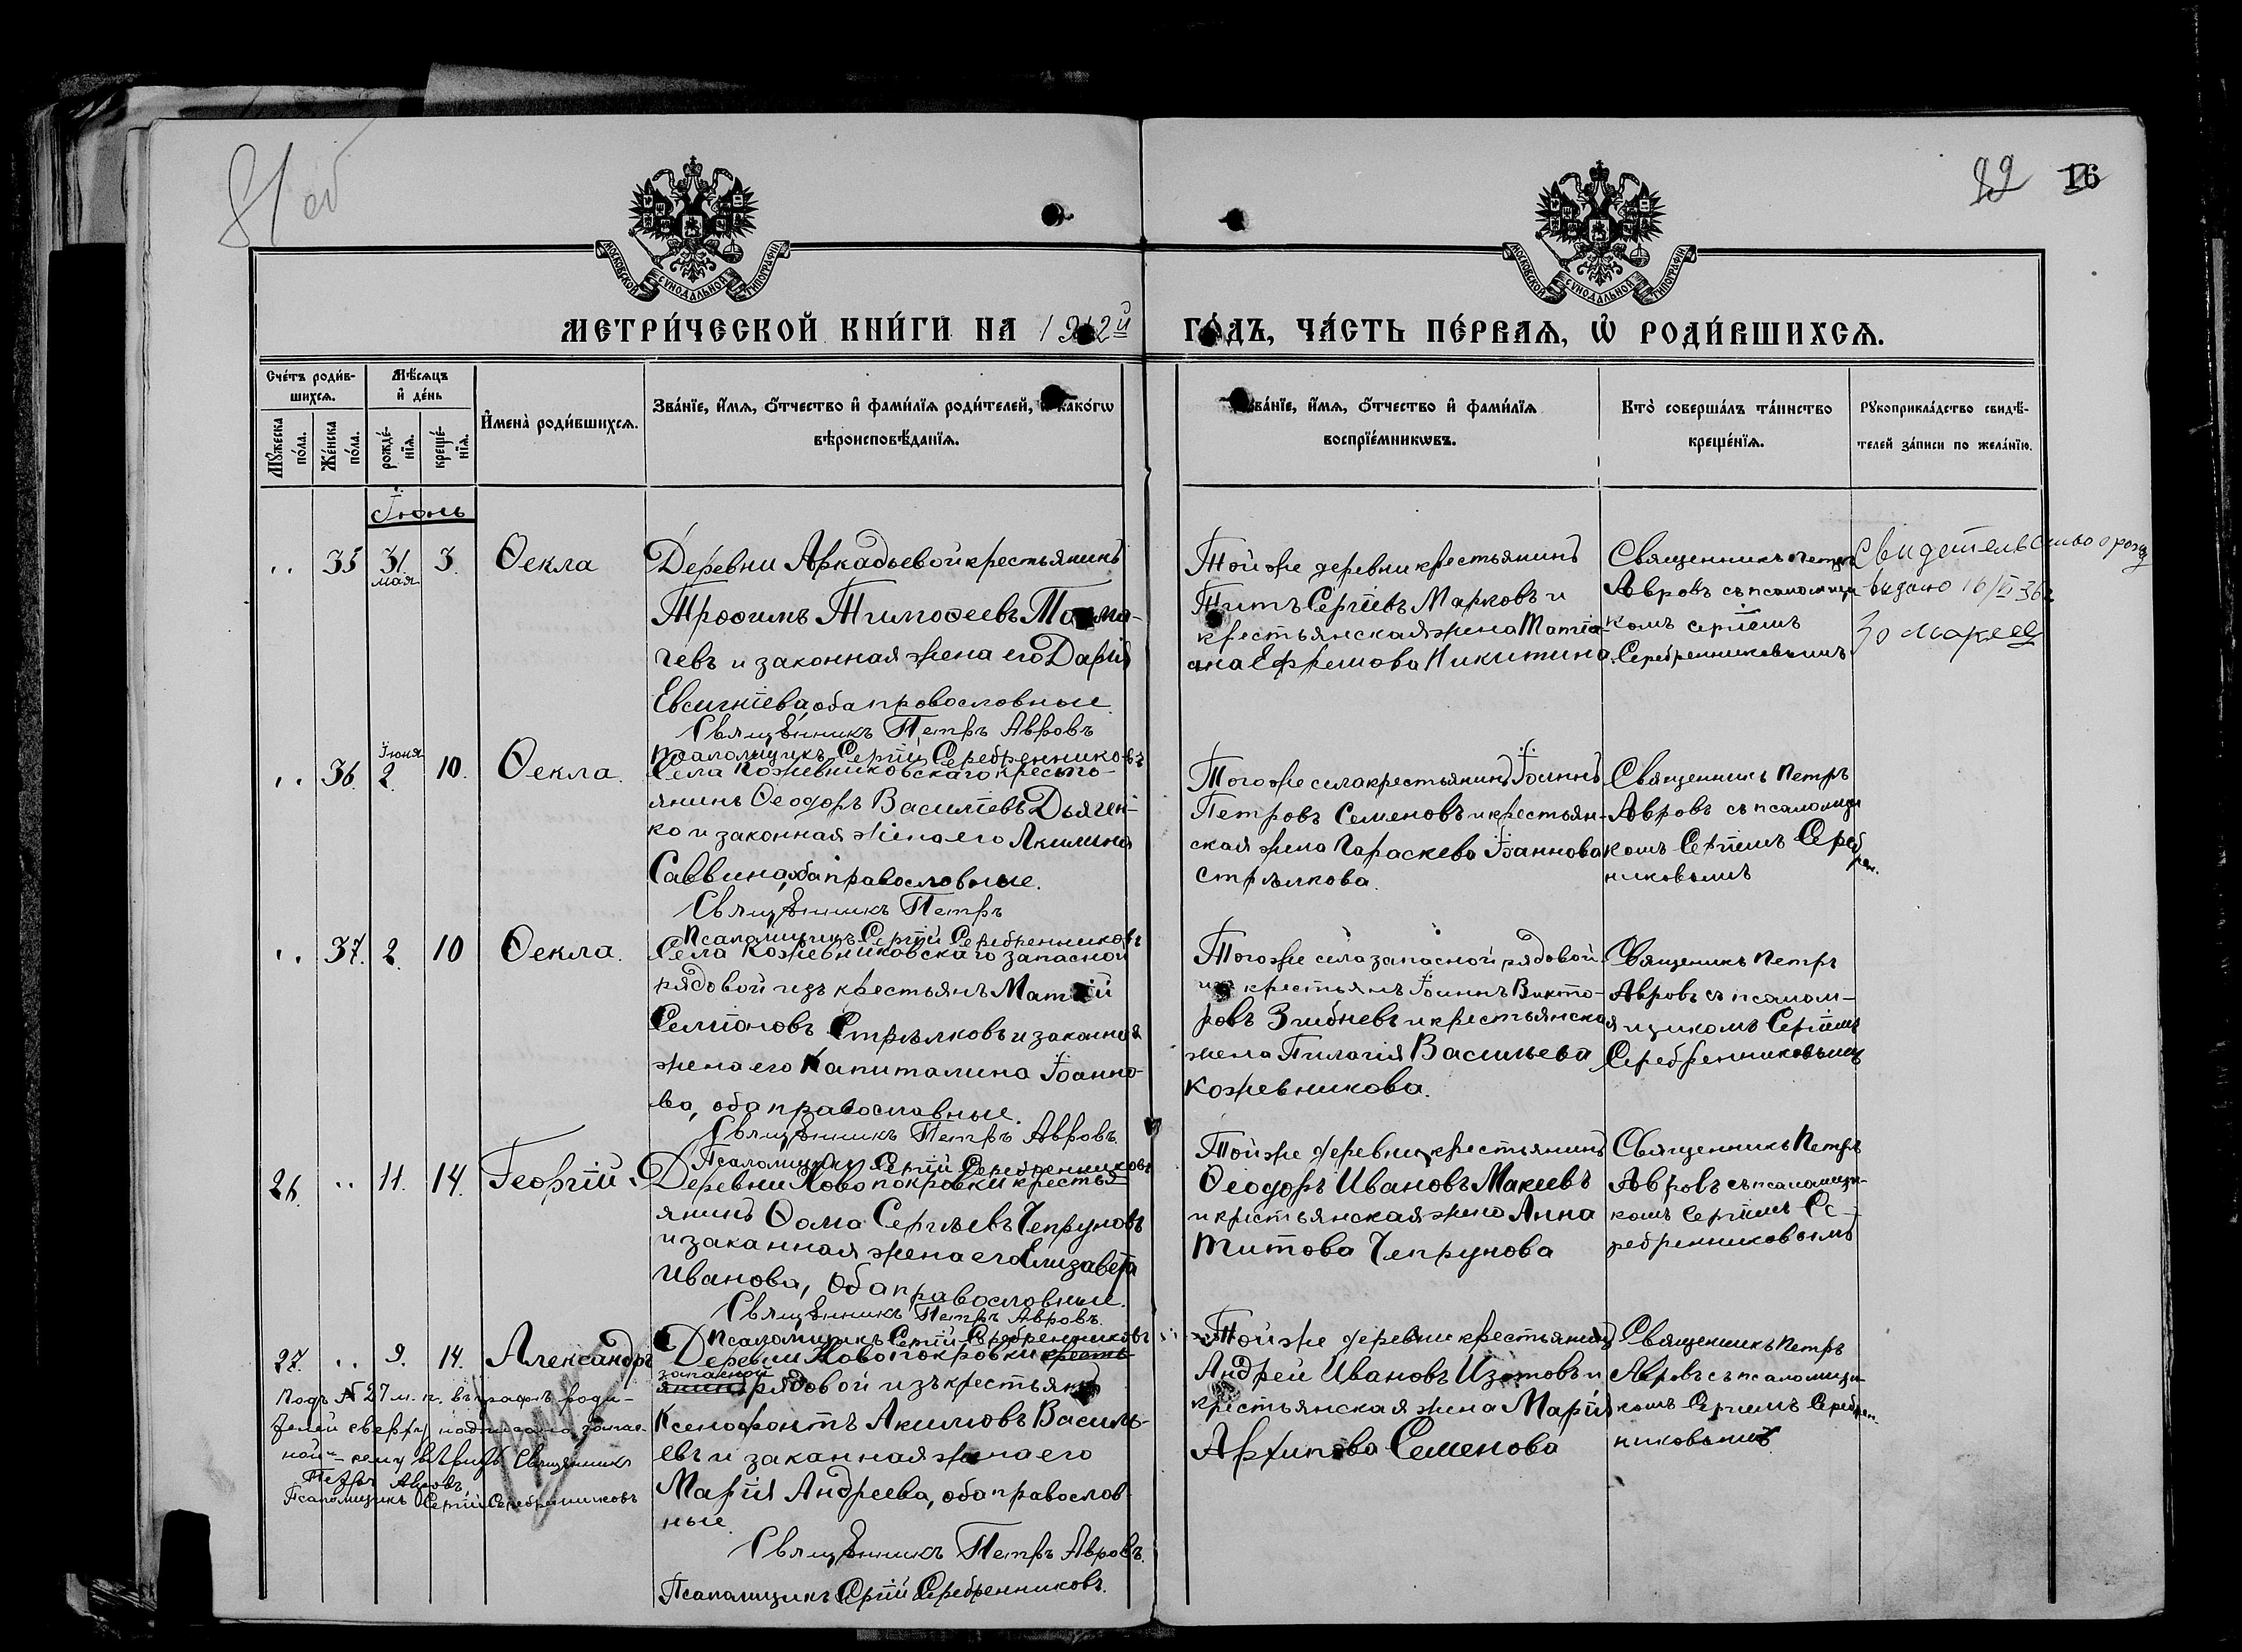 81 об
82 16
МОСКОВСКОЙ СѴНОДАЛЬНОЙ ТИПОГРАФІИ
МОСКОВСКОЙ СѴНОДАЛЬНОЙ ТИПОГРАФІИ
МЕТРИ́ЧЕСКОЙ КНИ́ГИ НА 1912й ГО́ДЪ, ЧА́СТЬ ПЕ́РВАѦ, Ѡ҆ РОДИ́ВШИХСѦ.
Сче́тъ роди́в-
шихсѧ.
Мꙋ́жеска
по́ла.
Же́нска
по́ла.
Мѣ́сѧцъ
и҆ де́нь
рожде́-
нїѧ.
креще́-
нїѧ.
И҆мена̀ роди́вшихсѧ.
Зва́нїе, и҆́мѧ, ѻ҆́тчество и҆ фами́лїѧ роди́телей, и҆ како́гѡ
вѣроисповѣ́данїѧ.
Зва́нїе, и҆́мѧ, ѻ҆́тчество и҆ фами́лїѧ
воспрїе́мникѡвъ.
Кто̀ соверша́лъ та́инство
креще́нїѧ.
Рꙋкоприкла́дство свидѣ́-
телей за́писи по жела́нїю.
Іюнь
" 35 31 мая 3. Ѳекла
Деревни Аркадьевой крестьянинъ
Трофимъ Тимофеевъ
чевъ и законная жена его Дарія
Евсигніева, оба провославные.
Священникъ Петръ Авровъ
Псаломщикъ Сергій Серебренниковъ
Той же деревни крестьянинъ
Титъ Сергіевъ Марковъ и
крестьянская жена Татіа-
на Ефремова Никитина.
Священникъ Петръ
Авровъ съ псаломщи-
комъ Сергіемъ
Серебренниковымъ
Свидетельство о рожд
выдано 16/VI 36 г
" 36. Іюня 2. 10. Ѳекла.
Села Кожевниковскаго кресть-
янинъ Ѳеодоръ Василіевъ Дьячен-
ко и законная жена его Акилина
Саввина, оба православные.
Священникъ Петръ
Псаломщикъ Сергій Серебренниковъ
Того же села крестьянинъ Іоаннъ
Петровъ Семеновъ и крестьян-
ская жена Параскева Іоаннова
Стрѣлкова.
Священникъ Петръ
Авровъ съ псаломщи
комъ Сергіемъ Сереб
рен.
никовымъ
" 37. 2. 10 Ѳекла.
Села Кожевниковскаго запасной
рядовой изъ крестьянъ Матѳій
Стрѣлковъ и законная
жена его Капиталина Іоанно-
ва, оба православные.
Священникъ Петръ Авровъ.
Псаломщикъ Сергій Серебренниковъ
Того же села запасной рядовой
изъ крестьянъ Іоаннъ Викто-
ровъ Згибневъ и крестьянская
жена Пилагія Васильева
Кожевникова.
Священикъ Петръ
Авровъ съ псалом-
щикомъ Сергіемъ
Серебренниковымъ
26. " 11. 14. Георгій.
Деревни Новопокровки крестья
янинъ Ѳома Сергѣевъ Чепруновъ
и заканная жена его Елизавета
Иванова, оба православные.
Священникъ Петръ Авровъ.
Псаломщикъ Сергій Серебренниковъ
Той же деревни крестьянинъ
Ѳеодоръ Ивановъ Макеевъ
и крестьянская жена Анна
Титова Чепрунова
Священникъ Петръ
Авровъ съ псаломщи-
комъ Сергіемъ Се-
ребренниковымъ
27. " 9. 14. Александръ
Деревни Новопокровки кресть
янинъ запасной рядовой изъ крестьянъ
Ксенофонтъ Акимовъ Василь-
евъ и заканная жена его
Марія Андреева, оба православ-
ные.
Священникъ Петръ Авровъ.
Псаломщикъ Сергій Серебренниковъ.
Той же деревни крестьянинъ
Андрей Ивановъ Изотовъ и
крестьянская жена Марія
Архипова Семенова
Священникъ Петръ
Авровъ съ псаломщи-
комъ Сергіемъ Серебрен-
никовымъ
Подъ № 27 м. п. въ графѣ роди-
телей сверху надписано „запас-
ной“ сему вѣримъ Священникъ
Петръ Авровъ
Псаломщикъ Сергій Серебренниковъ